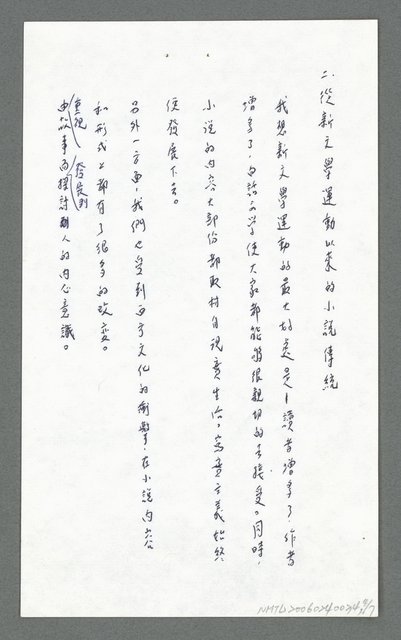 二、從新文學運動以來的小說傳統
我想新文學運動的最大好處是——讀者增多了，作者
增多了，白話文學使大家都能夠很親切的去接受。同時，
小說的內容大部份都取材自現實生活，寫實主義始終
便發展下去。
另外一方面，我們也受到西方文化的衝擊，在小說內容
和形式上都有了很多的改變。
重視 發展到
由故事而探討人的內心意識。
NMTL20060240034